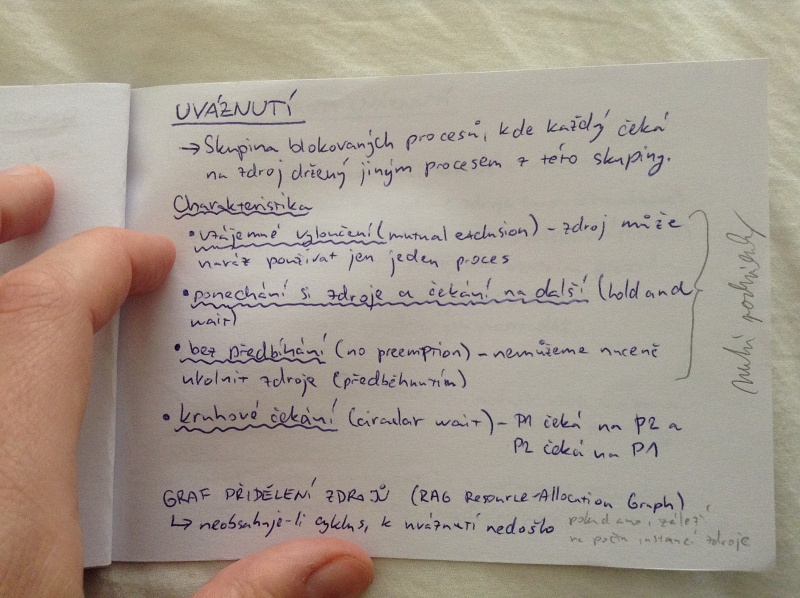 UVÁZNUTÍ
→ Skupina blokovaných procesů, kde každý čeká
na zdroj držený jiným procesem z této skupiny.
Charakteristika
• vzájemné vyloučení (mutual exclusion) – zdroj může
naráz používat jen jeden proces
• ponechání si zdroje a čekání na další (hold and
wait)
• bez předbíhání (no preemption) – nemůžeme nuceně
ukolnit zdroje (předběhnutím)
• kruhové čekání (circular wait) – P1 čeká na P2 a
P2 čeká na P1
nutné podmínky
GRAF PŘIDĚLENÍ ZDROJŮ (RAG Resource-Allocation Graph)
↳ neobsahuje-li cyklus, k uváznutí nedošlo
pokud ano, záleží
na počtu instancí zdroje